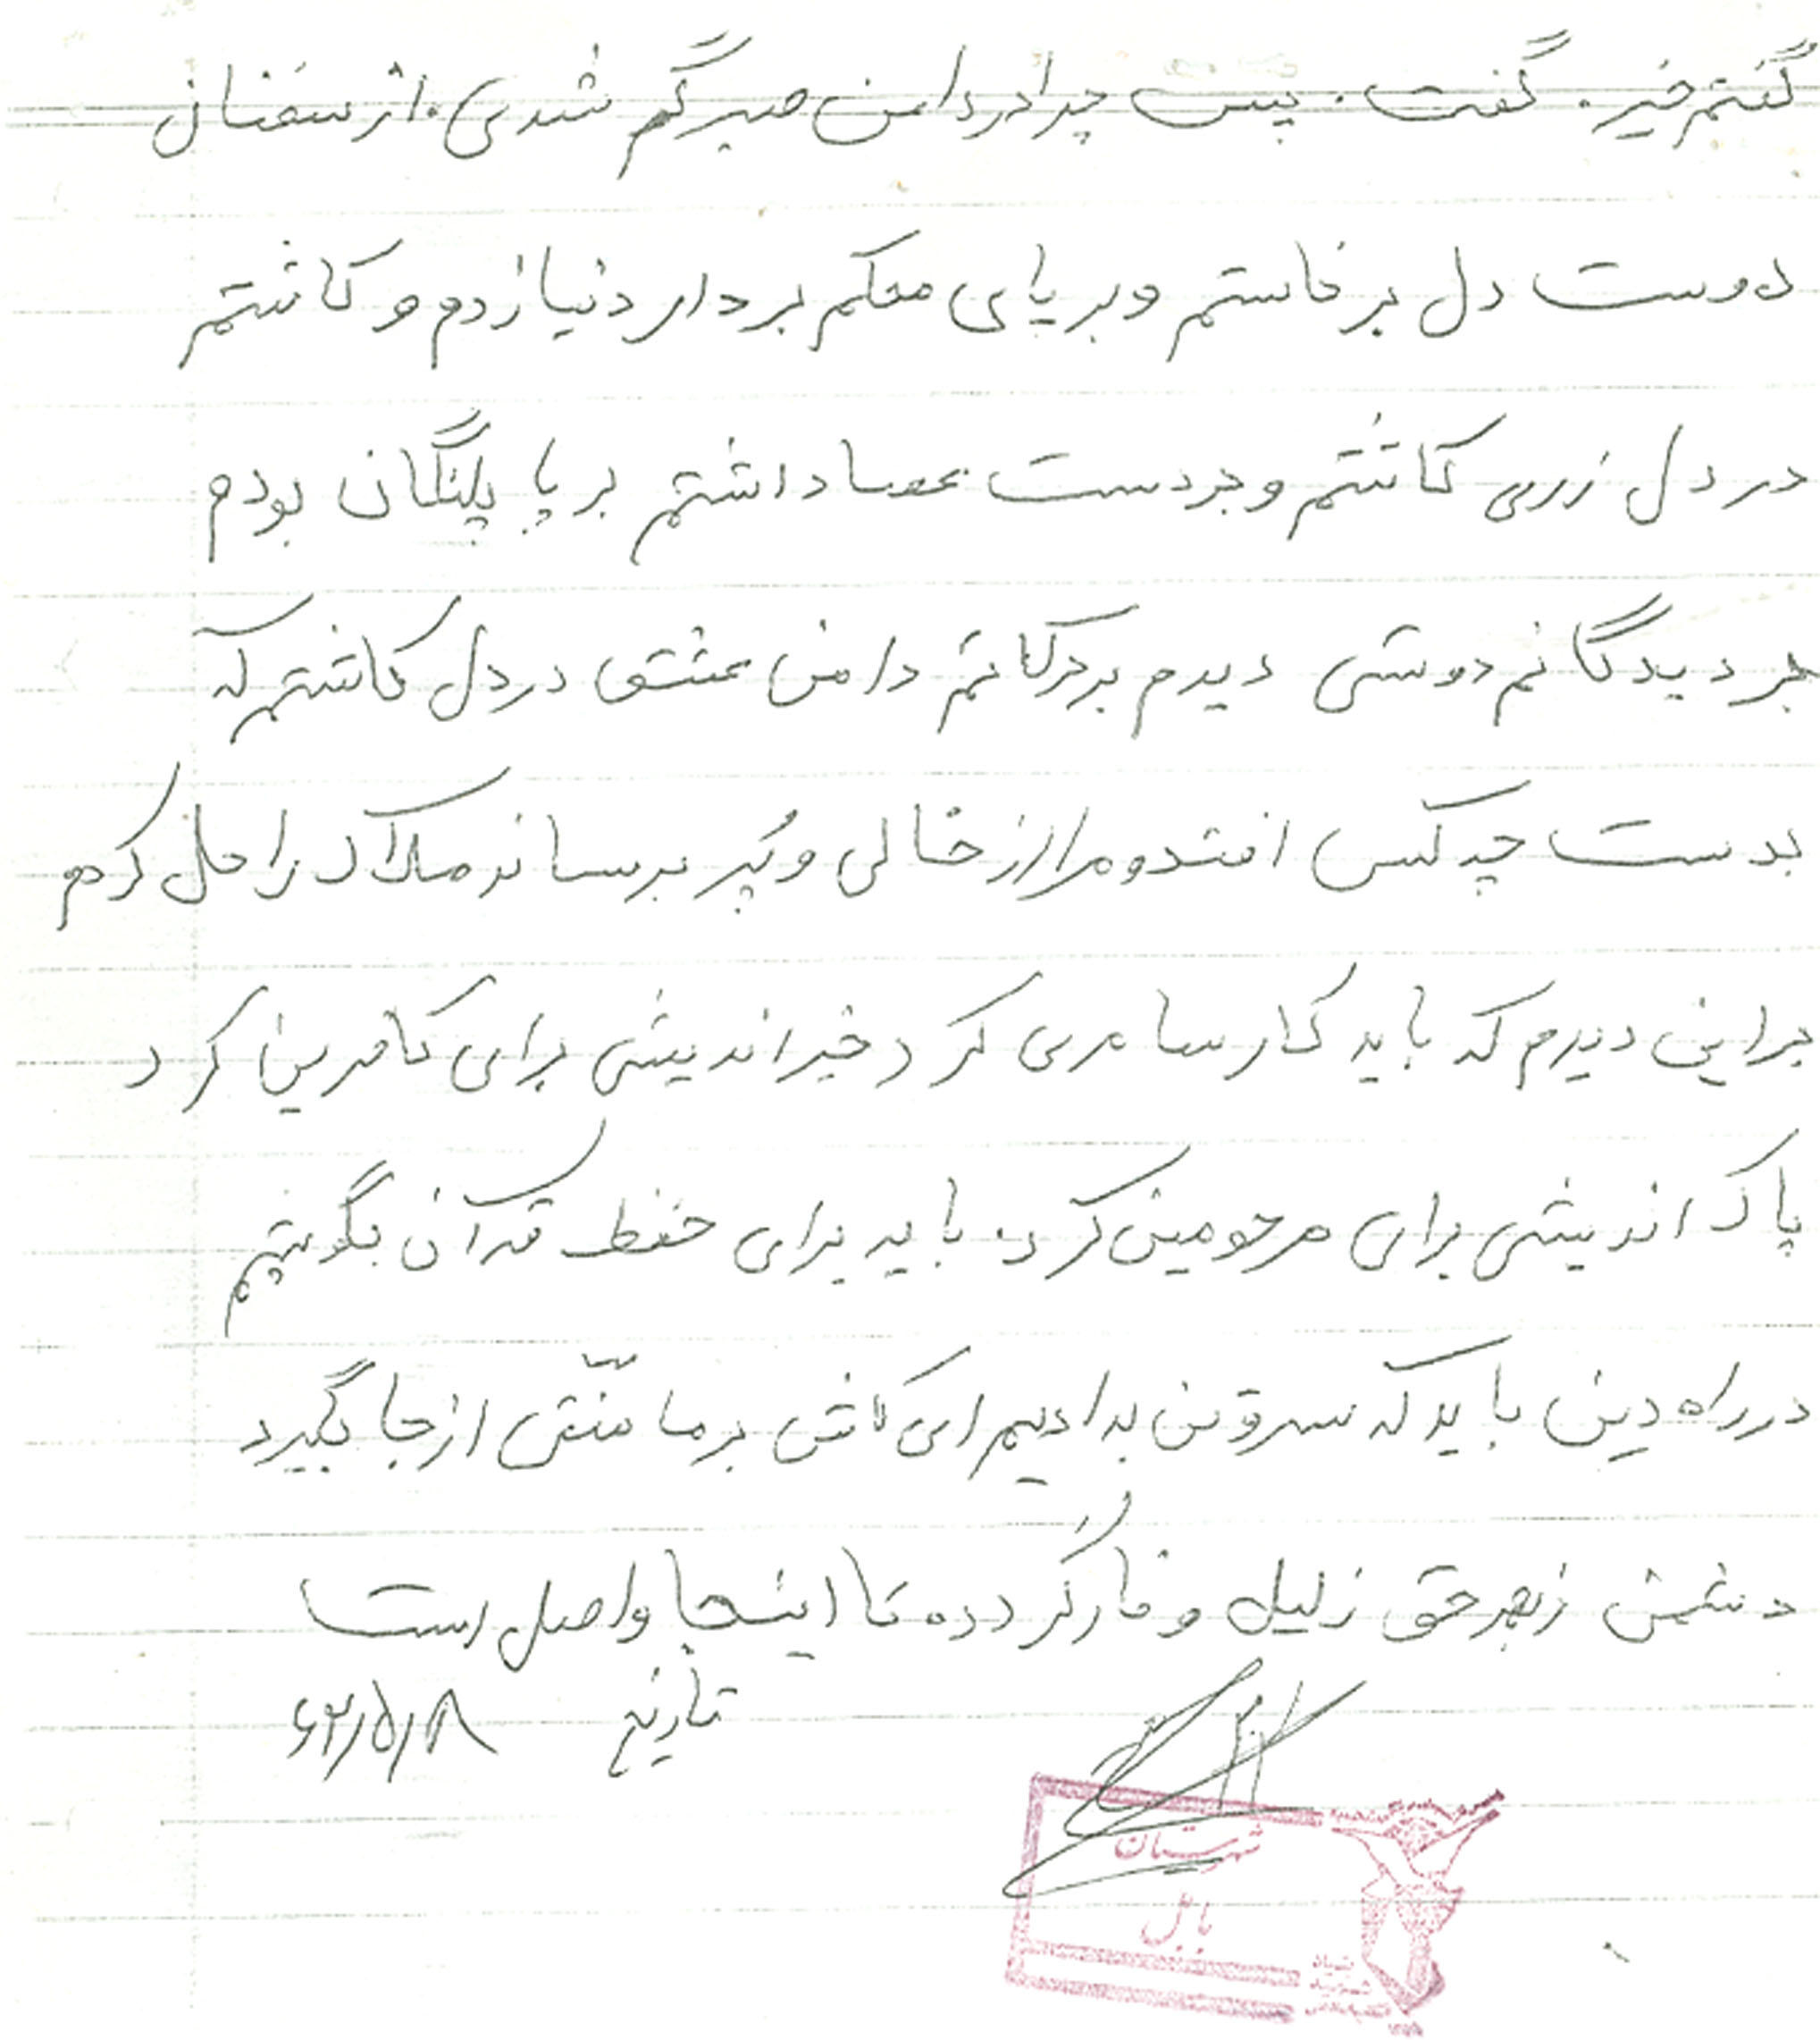 گفتم خیر. گفت. پس چرا در این صبر گم شدی. از سخنان
دوست دل برخاستم و بر پای محکم بر دار دنیا زدم و کاشتم
در دل زری کاشتم و بر دست عصا داشتم بر پا پلنگان بودم
بر دیدگانم دوشی دیدم بر دامن عشق در دل کاشتم که
بدست چه کس افتد و مرا از خالی و پُر برساند ملاک را حل کردم
بر این دیدم که باید کار سامری کرد خیر اندیشی برای کافرین کرد
پاک اندیشی برای مرحومین کرد. باید برای حفظ قرآن بگوییم
در راه دین باید که سر و تن بدادیم ای کاش بر ما منّتی از جا بگیرد
دشمن ز بهر حق ذلیل و خار کرده تا اینجا واصل است
تاریخ ۶۲/۵/۸
شهرستان
بابل